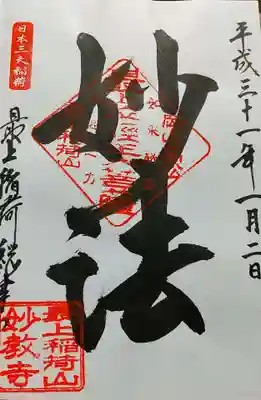 平成三十一年一月二日
妙法
日本三大稲荷
最上稲荷総本山
最上稲荷山
妙教寺